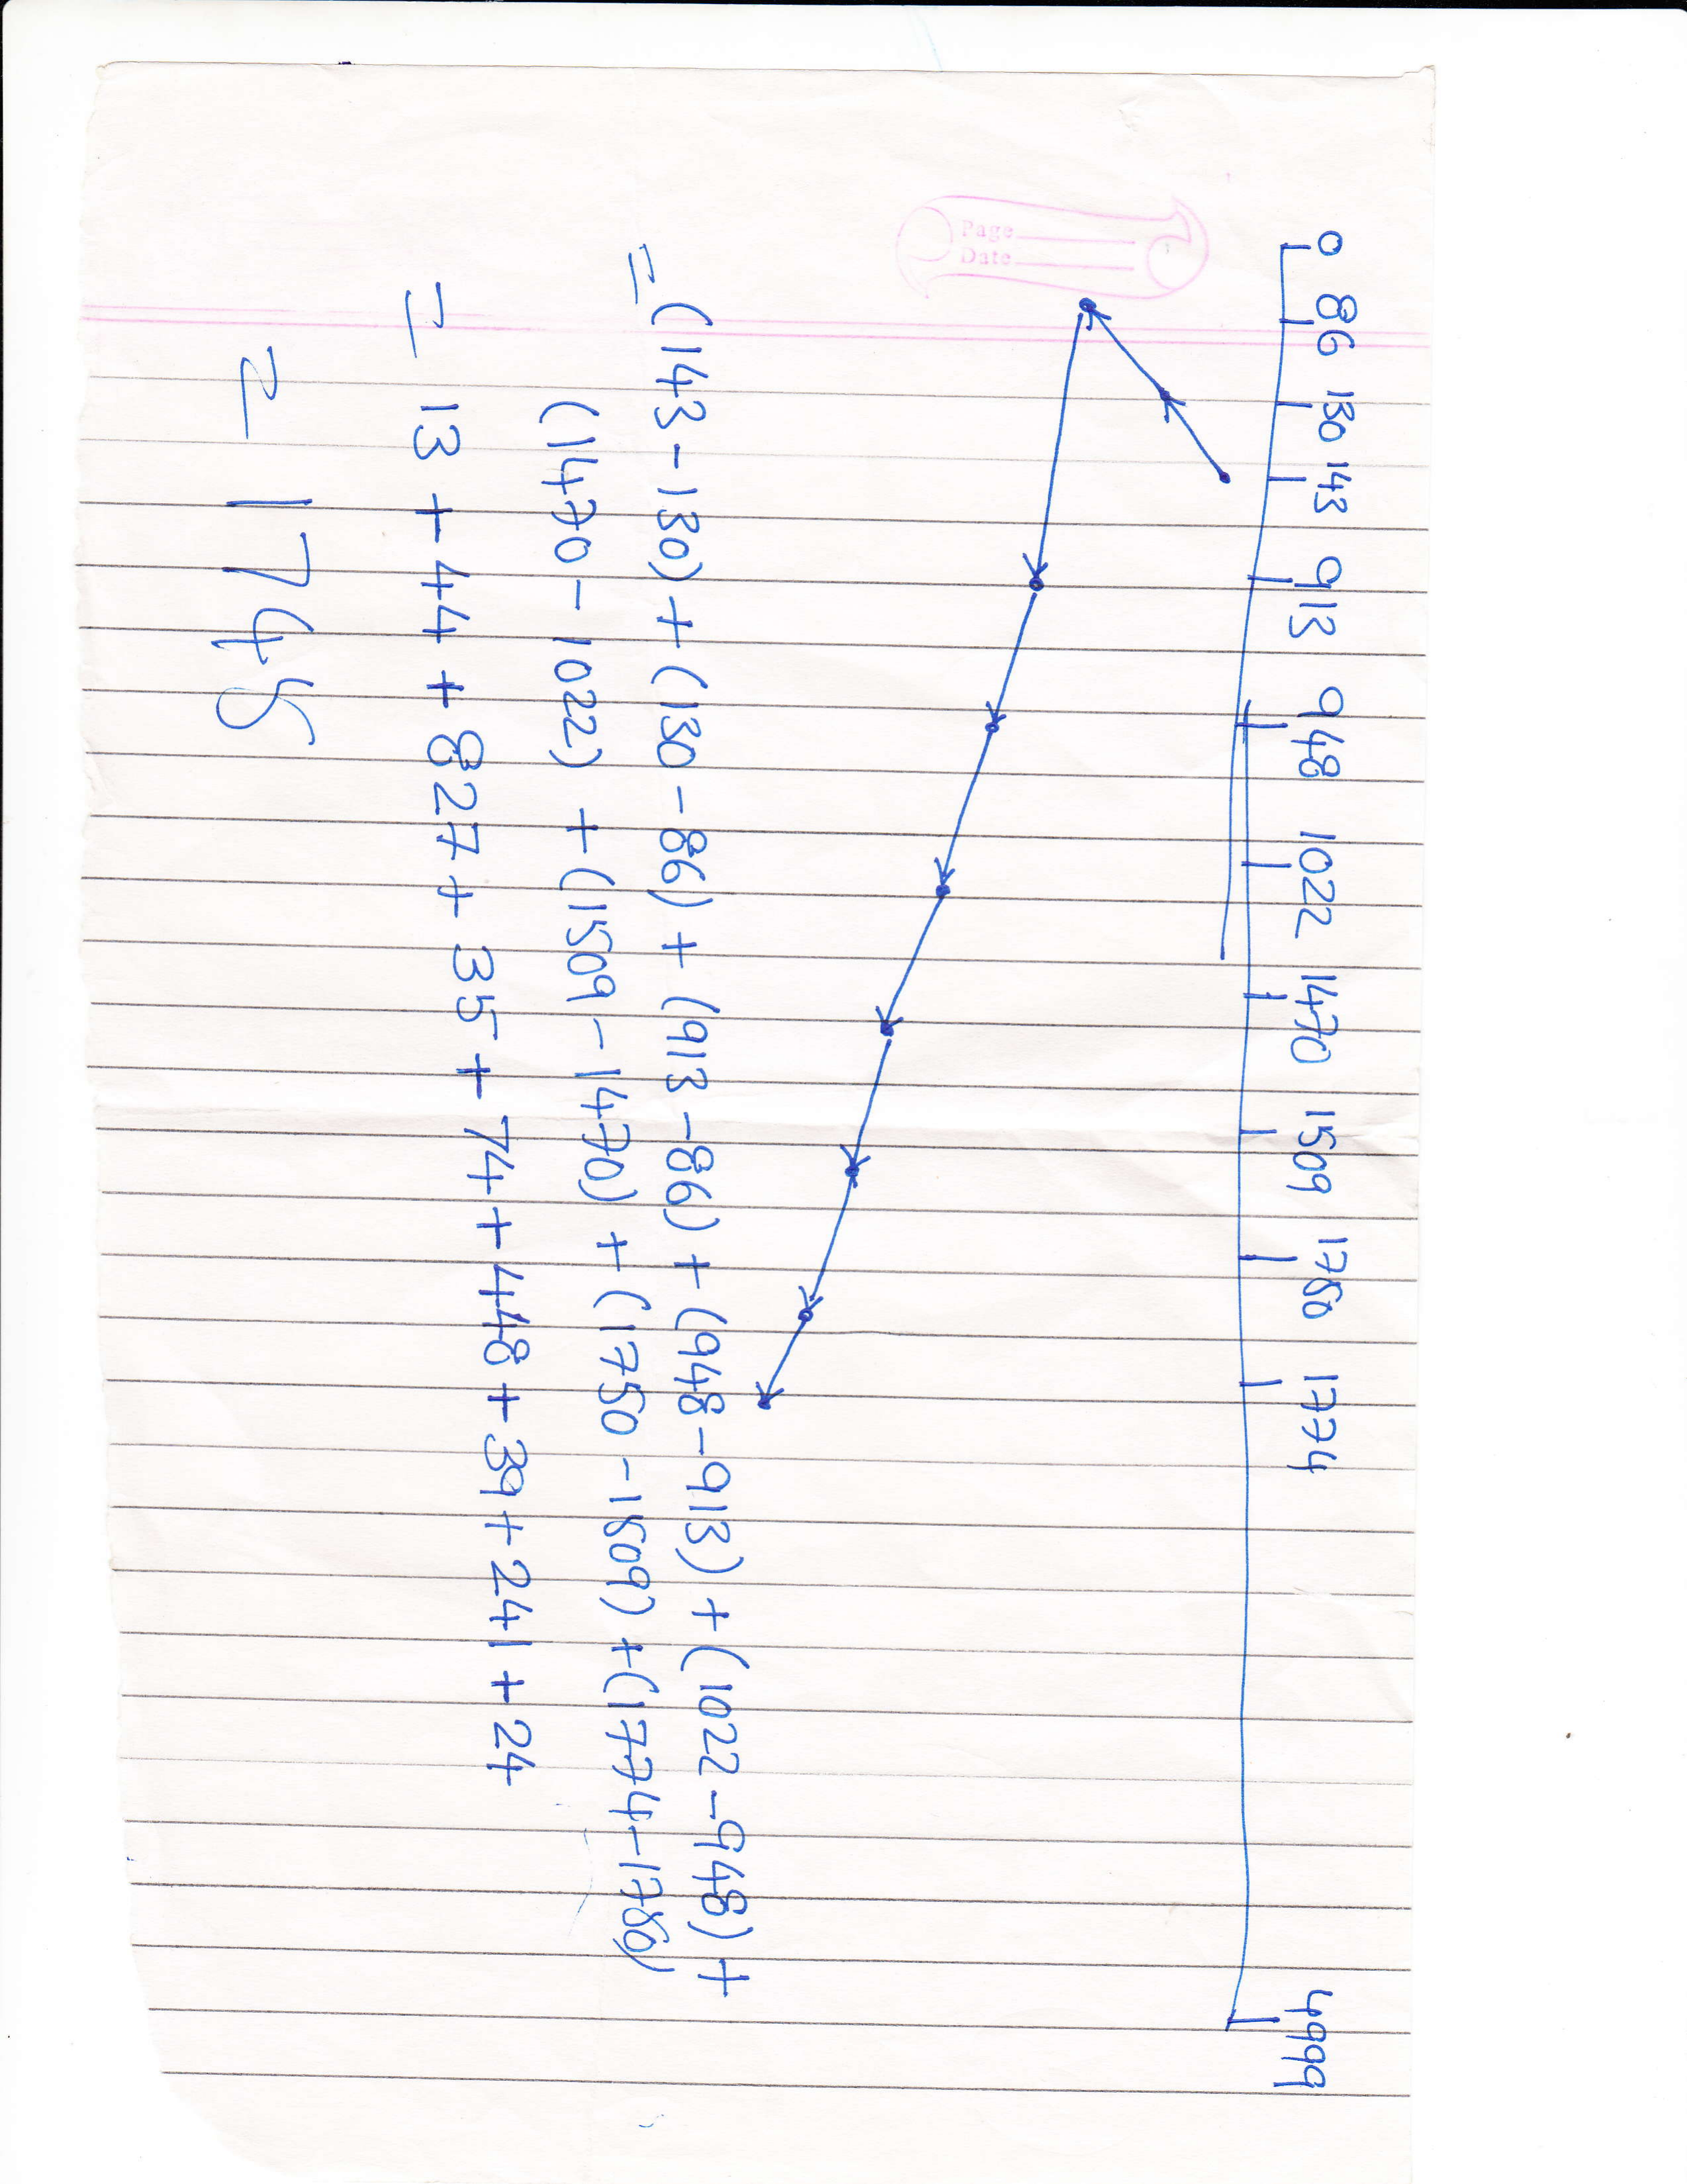 0 86 130 143 913 948 1022 1470 1509 1750 1774 4999
Page
Date
= (143-130) + (130-86) + (913-86) + (948-913) + (1022-948) +
(1470-1022) + (1509-1470) + (1750-1509) + (1774-1750)
= 13 + 44 + 827 + 35 + 74 + 448 + 39 + 241 + 24
= 1745